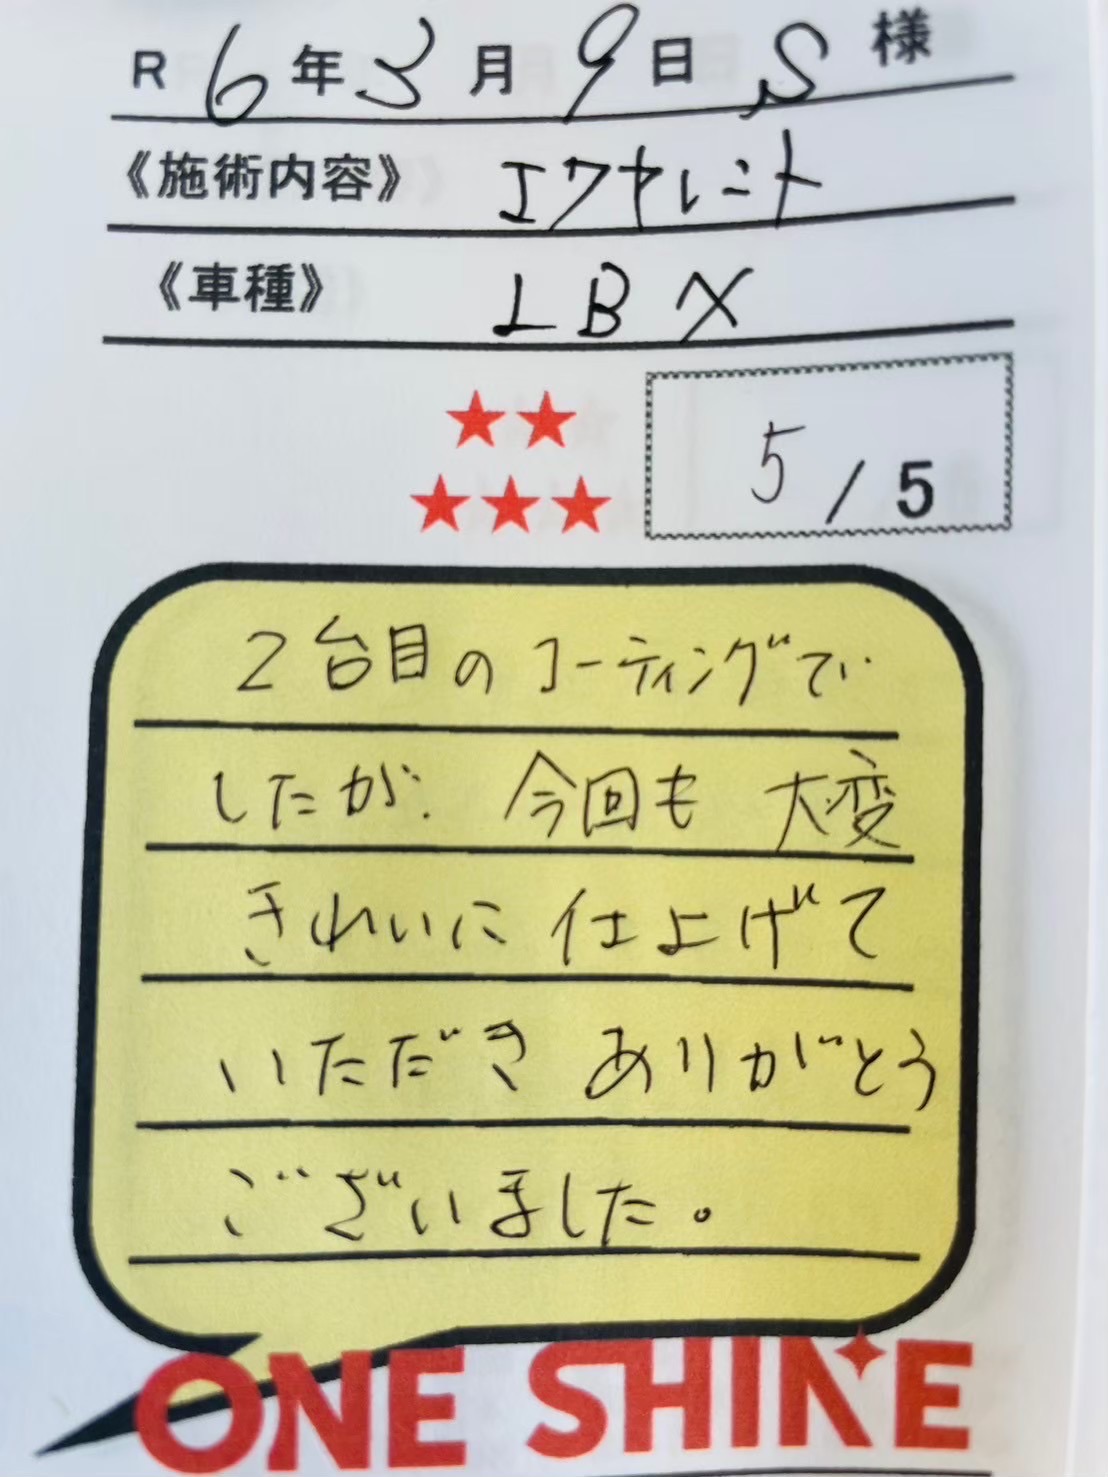 R 6年3月9日 S 様
《施術内容》 エクセレント
《車種》 LBX
★★
★★★ 5/5
2台目のコーティングで
したが、今回も大変
きれいに仕上げて
いただきありがとう
ございました。
ONE SHINE